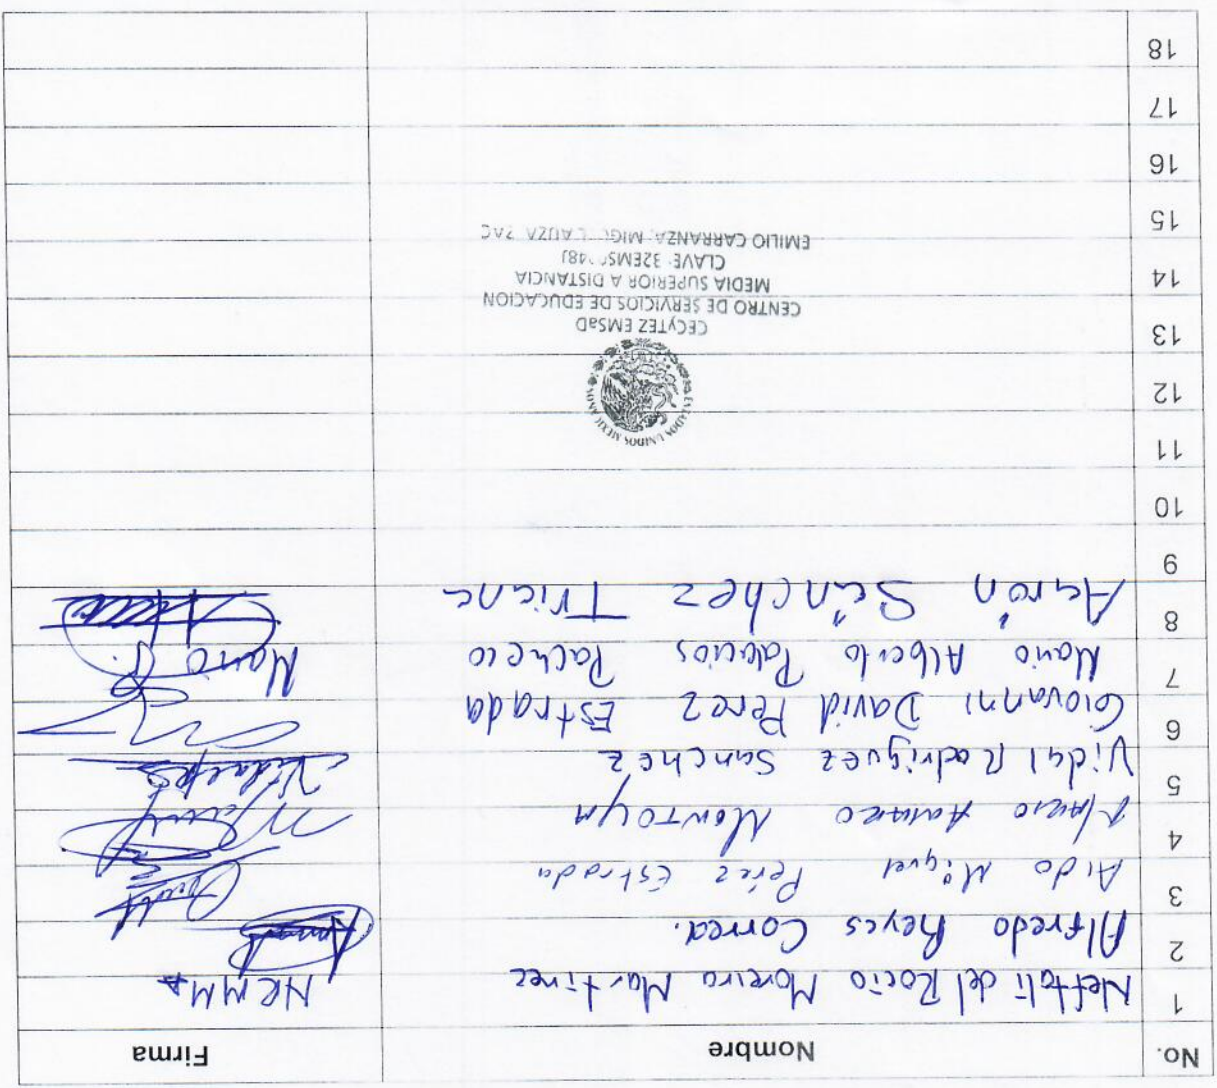 No. Nombre Firma
1 Neftali del Rocio Moreira Martinez NRMM
2 Alfredo Reyes Correa.
3 Aldo Miguel Pérez Estrada
4 Mario Montoya
5 Vidal Rodriguez Sanchez
6 Giovanni David Perez Estrada
7 Mario Alberto Palacios Pacheco Mario P.
8 Aarón Sánchez Triana
9
10
11
12
13
14
15
16
17
18
ESTADOS UNIDOS MEXICANOS
CECyTEZ EMSaD
CENTRO DE SERVICIOS DE EDUCACION
MEDIA SUPERIOR A DISTANCIA
CLAVE
EMILIO CARRANZA, MIGUEL AUZA ZAC